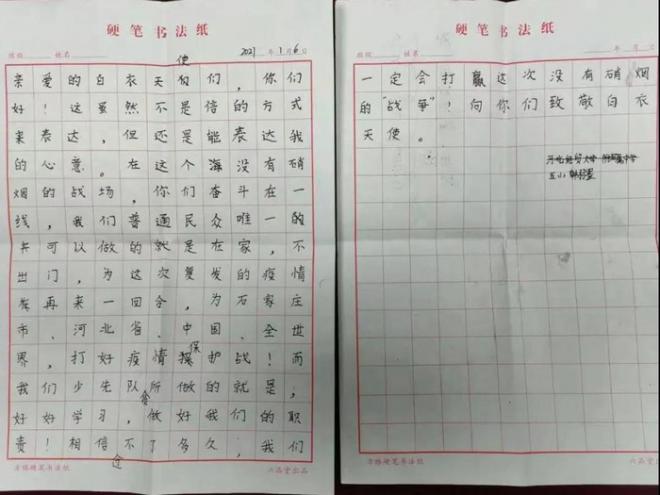 硬笔书法纸
班级 姓名 2021年1月6日
使
亲爱的白衣天们，你们
好！这虽然不是信的方式
来表达，但还是能表达我
的心意。在这个没有硝
烟的战场，你们奋斗在一
线，我们普通民众唯一的
可以做的就是在家，不
出门，为这次复发的疫情
再来一回合，为石家庄
市、河北省、中国、全世
界，打好疫情保护战！而
我们少先队所做的就是，
好好学习，做好我们的职
责！相信不了多久，我们
会
方格硬笔书法纸 六品堂出品
硬笔书法纸
班级 姓名 年 月 日
一定会打赢这次没有硝烟
的“战争”！向你们致敬白衣
天使。
河北经贸大学
五小
方格硬笔书法纸 六品堂出品